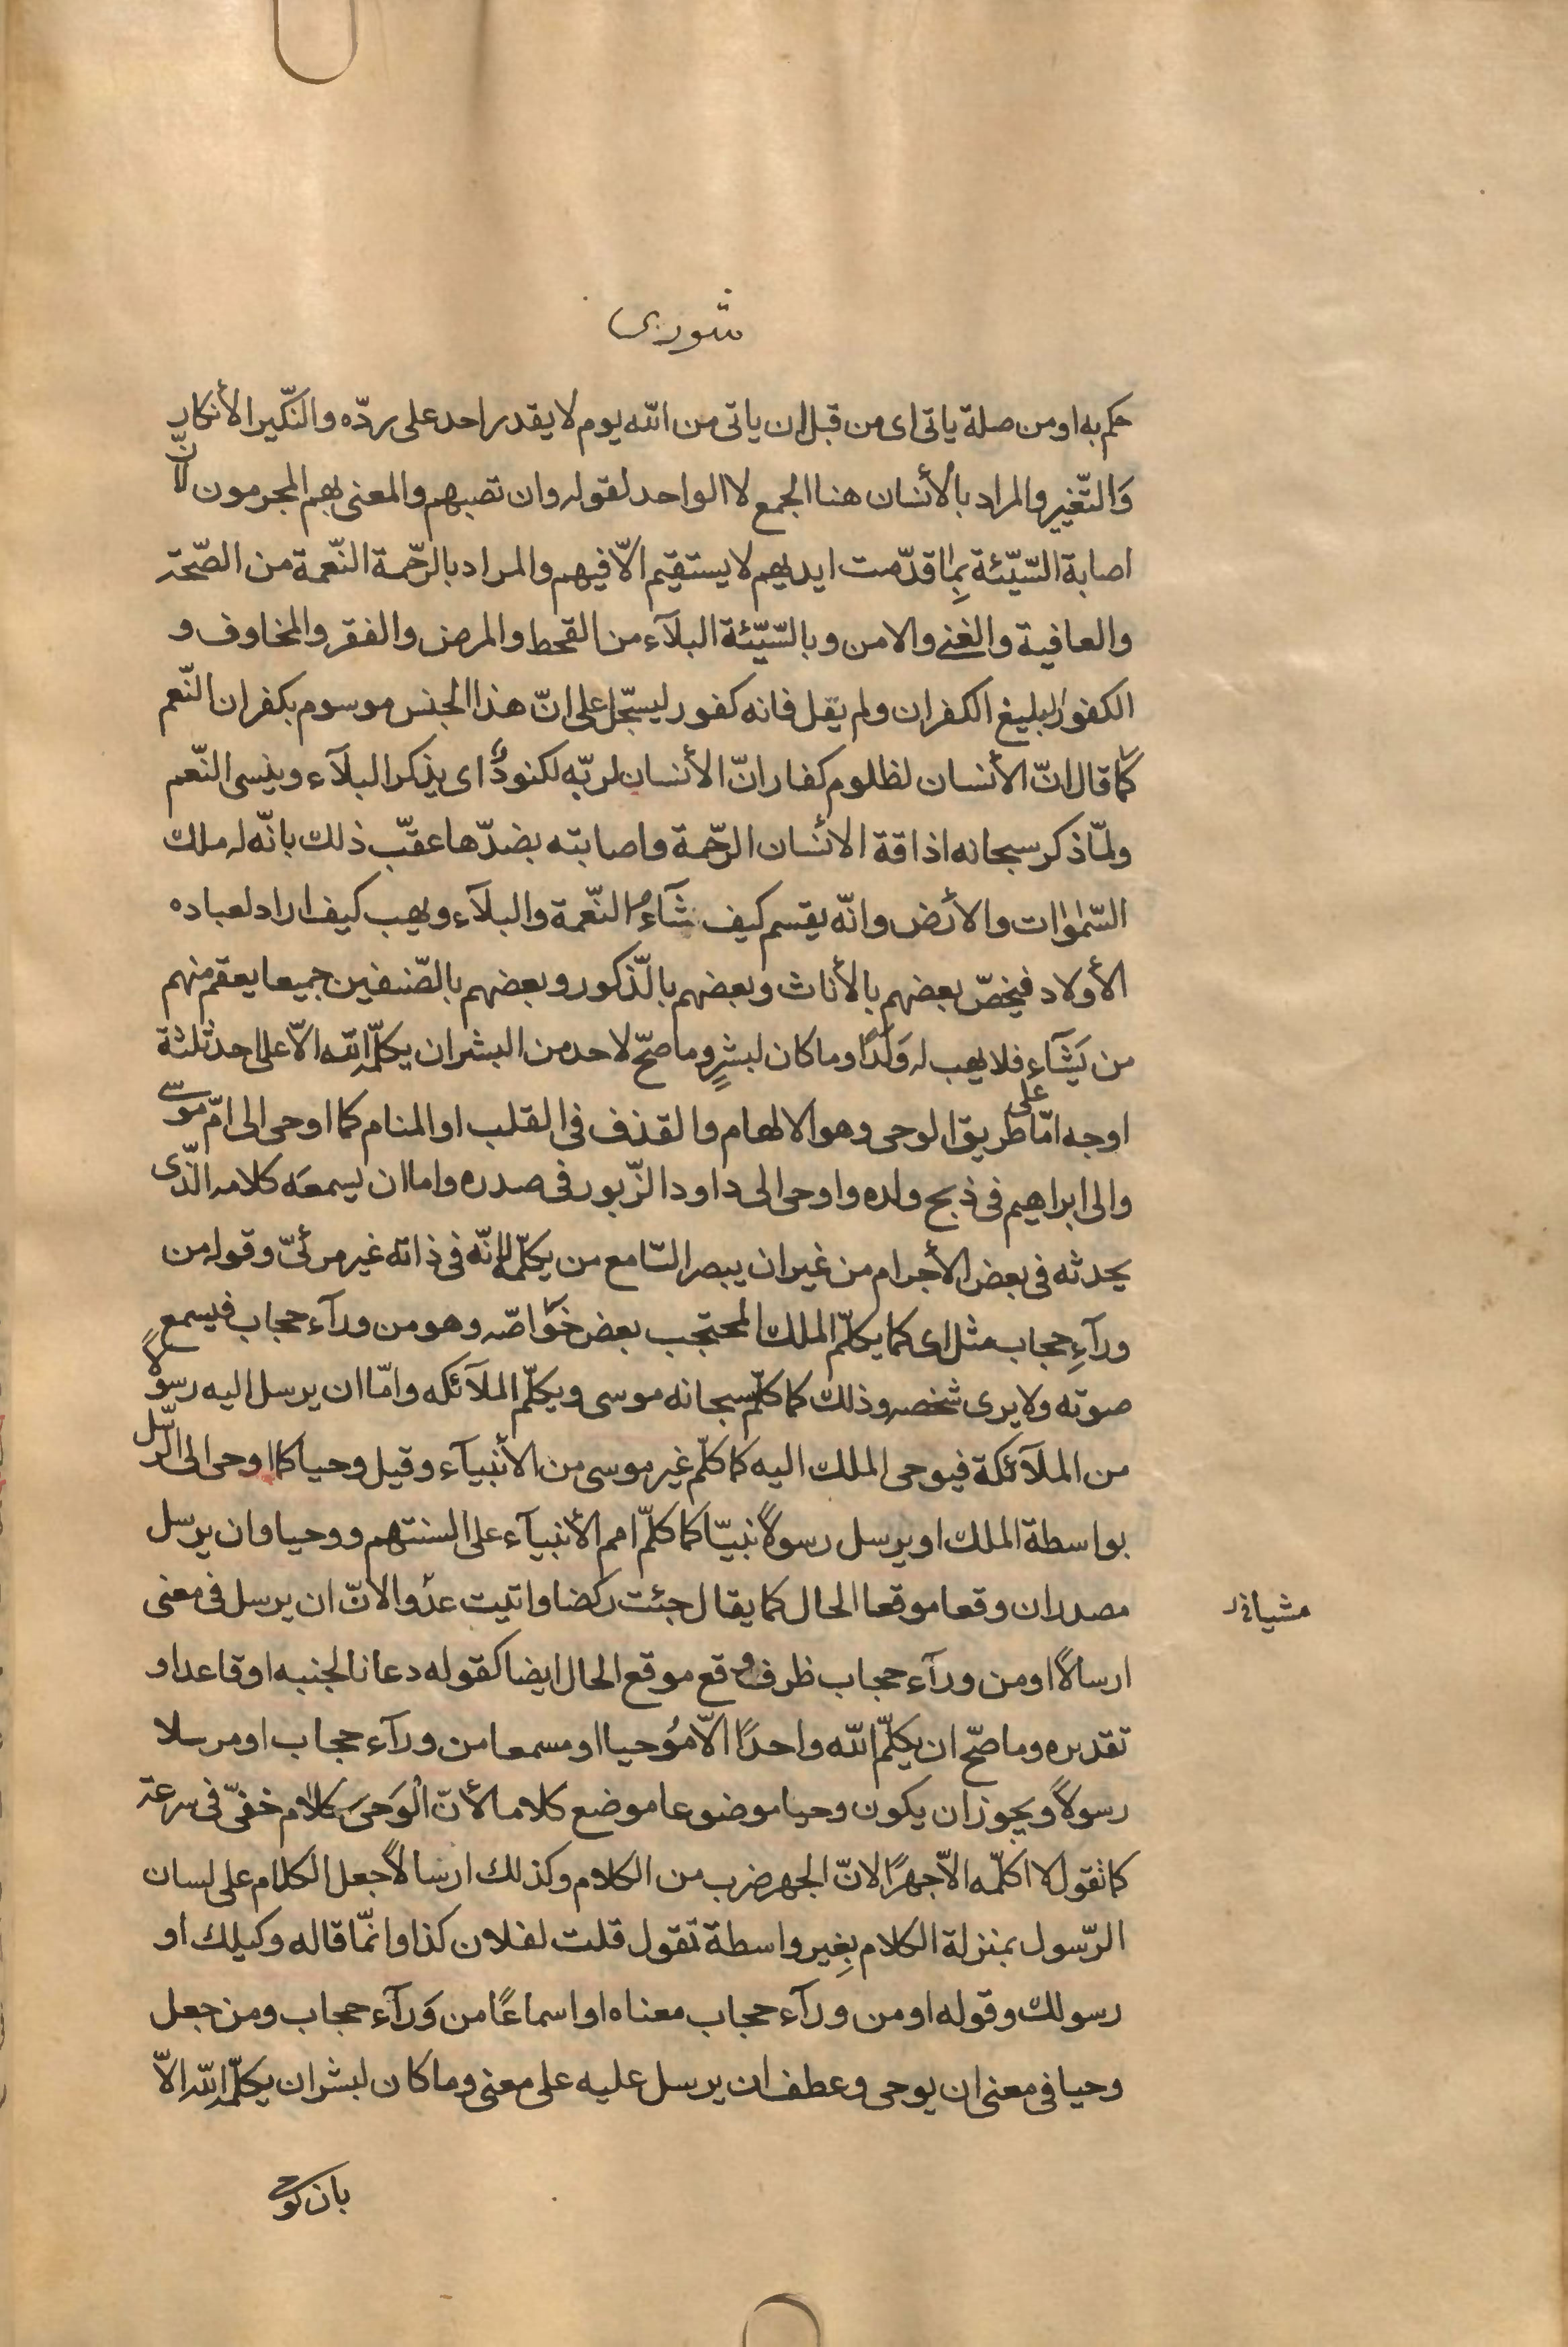 شوری
حكم به او من صلة ياتى اى من قبل ان ياتى من الله يوم لا يقدر احد على ردّه والنّكير الأنكار
وَالتّغيير والمراد بالأنسان هنا الجمع لا الواحد لقوله وان تصبهم والمعنى بهم المجرمون لأنّ
اصابة السّيّئة بِما قدّمت ايديهم لا يستقيم الّا فيهم والمراد بالرّحمة النّعمة من الصّحة
والعافية والغنى والامن وبالسّيّئة البلآء من القحط والمرض والفقر والمخاوف و
الكفور البليغ الكفران ولم يقل فانه كفور ليسجّل على انّ هذا الجنس موسوم بكفران النّعم
كما قال انّ الأنسان لظلوم كفار انّ الأنسان لربّه لكنودٌ اى يذكر البلآء وينسى النّعم
ولمّا ذكر سبحانه اذاقة الأنسان الرّحمة واصابته بضدّها عقّب ذلك بانّه له ملك
السّموات والأرض وانّه يقسم كيف شآء النّعمة والبلآء ويهب كيف اراد لعباده
الأولاد فيخصّ بعضهم بالأناث وبعضهم بالّذكور وبعضهم بالصّنفين جميعا يعقم منهم
من يَشَآء فلا يهب له وَلَدًا وما كان لبشرٍ وما صحّ لاحد من البشر ان يكلّمه الله الّا على احد ثلثة
اوجه امّا على طريق الوحى وهو الالهام والقذف فى القلب او المنام كما اوحى الى امّ موسى
والى ابراهيم فى ذبح ولده واوحى الى داود الزّبور فى صدره واما ان يسمعَه كلامه الّذى
يحدثه فى بعض الأجرام من غير ان يبصر السّامع من يكلّمه لانّه فى ذاته غير مرئىّ وقوله من
ورآءِ حجاب مثل اى كما يكلّم الملك المحتجب بعض خوَاصّه وهو من ورآء حجاب فيسمع
صوته ولا يرى شخصه وذلك كما كلّم سبحانه موسى ويكلّم الملآئكه وامّا ان يرسل اليه رسولًا
من الملآئكة فيوحى الملك اليه كما كلّم غير موسى من الأنبيآء وقيل وحيا كما اوحى الى الرّسل
بواسطة الملك او يرسل رسولًا نبيّا كما كلّم امم الأنبيآء على السنتهم ووحيا وان يرسل
مصدران وقعا موقعا الحال كما يقال جئت ركضا واتيت عدْوا لانّ ان يرسل فى معنى
ارسالًا او من ورآء حجاب ظرف وقع موقع الحال ايضا كقوله دعانا لجنبه او قاعدا و
تقديره وما صحّ ان يكلّم الله واحدًا الّا مُوحيا او مسمعا من ورآء حجاب او مرسلا
رسولًا ويجوز ان يكون وحيا موضوعا موضع كلاما لأنّ الْوَحىَ كلام خفىّ فى سرعة
كما تقول لا اكلّمه الّا جهرًا لانّ الجهر ضرب من الكلام وكذلك ارسالًا جعل الكلام على لسان
الرّسول بمنزلة الكلام بِغير واسطة تقول قلت لفلان كذا وانّما قاله وكيلك او
رسولك وقوله او من ورآء حجاب معناه او اسماعًا من وَرآء حجاب ومن جعل
وحيا فى معنى ان يوحى وعطف ان يرسل عليه على معنى وما كان لبشر ان يكلّمه الله الّا